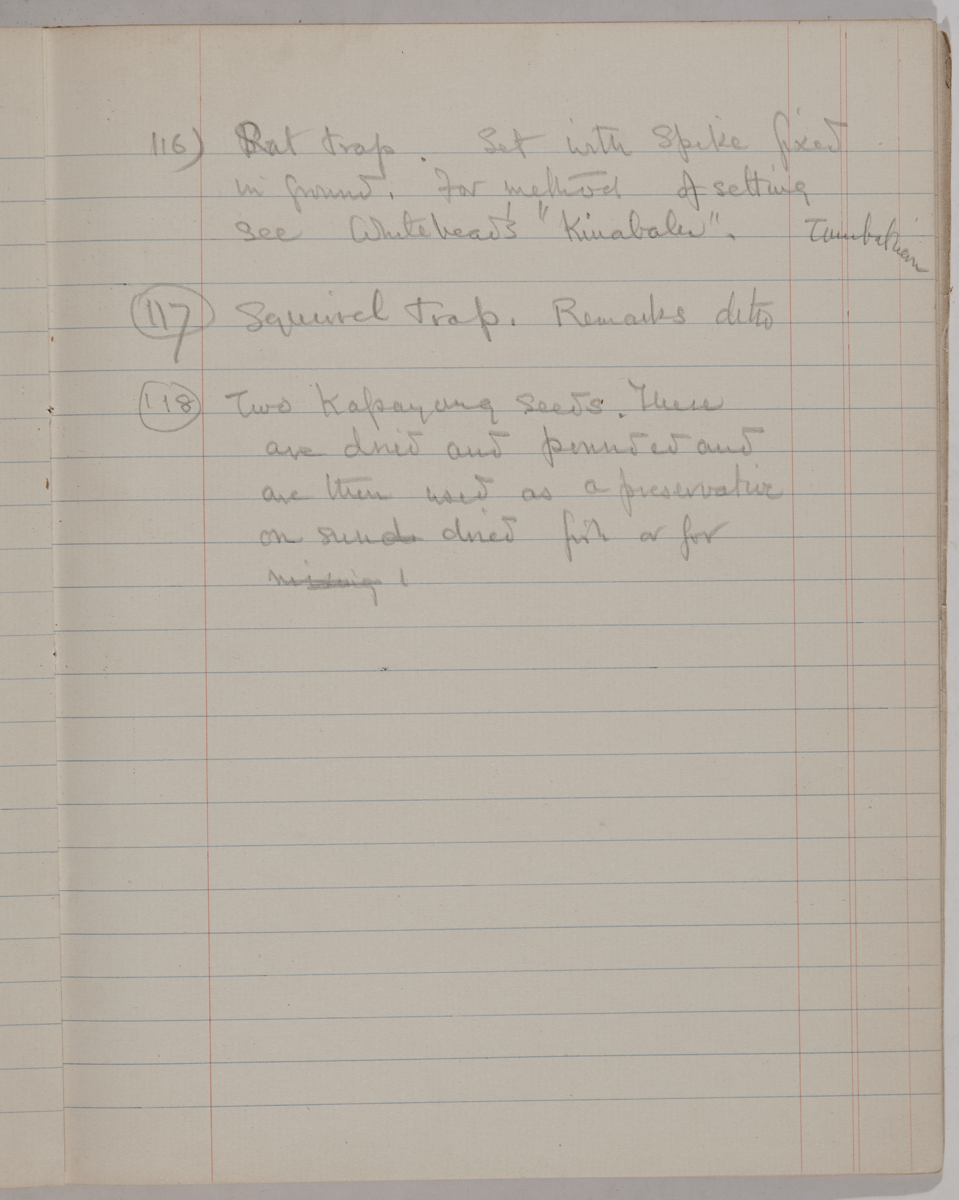 116) Rat trap. Set with spike fixed
in ground. For method of setting
see Whitehead's "Kinabalu".
117 Squirrel trap. Remarks ditto
118 Two Kapayang seeds. These
are dried and pounded and
are then used as a preservative
on sund dried fish or for
mixing